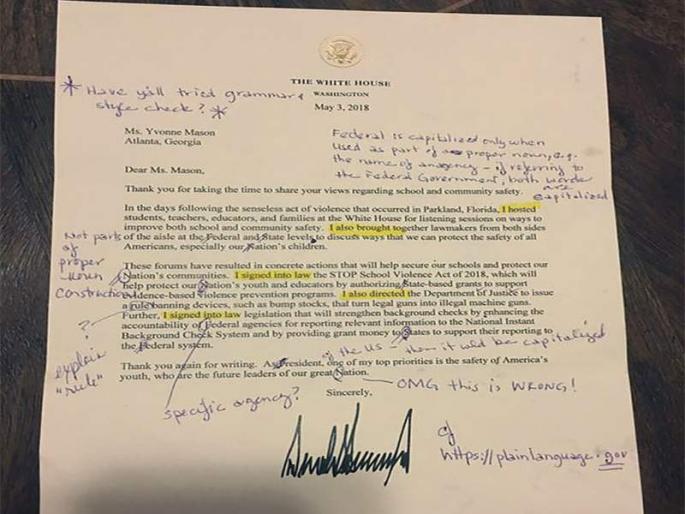 THE WHITE HOUSE
WASHINGTON
* Have y'all tried grammar &
style check? *
May 3, 2018
Ms. Yvonne Mason
Atlanta, Georgia
Federal is capitalized only when
used as part of a proper noun, e.g.
the name of an agency - if referring to
the Federal Government, both words
are
capitalized
Dear Ms. Mason,
Thank you for taking the time to share your views regarding school and community safety.
In the days following the senseless act of violence that occurred in Parkland, Florida, I hosted
students, teachers, educators, and families at the White House for listening sessions on ways to
improve both school and community safety. I also brought together lawmakers from both sides
of the aisle at the Federal and State levels to discuss ways that we can protect the safety of all
Americans, especially our Nation's children.
Not parts
of
proper
noun
construction
These forums have resulted in concrete actions that will help secure our schools and protect our
Nation's communities. I signed into law the STOP School Violence Act of 2018, which will
help protect our Nation's youth and educators by authorizing State-based grants to support
evidence-based violence prevention programs. I also directed the Department of Justice to issue
a rule banning devices, such as bump stocks, that turn legal guns into illegal machine guns.
Further, I signed into law legislation that will strengthen background checks by enhancing the
accountability of Federal agencies for reporting relevant information to the National Instant
Background Check System and by providing grant money to States to support their reporting to
the Federal system.
?
explain
"rule"
of the US - then it would be capitalized
Thank you again for writing. As President, one of my top priorities is the safety of America's
youth, who are the future leaders of our great Nation.
OMG this is WRONG!
specific agency?
Sincerely,
cf
https://plainlanguage.gov